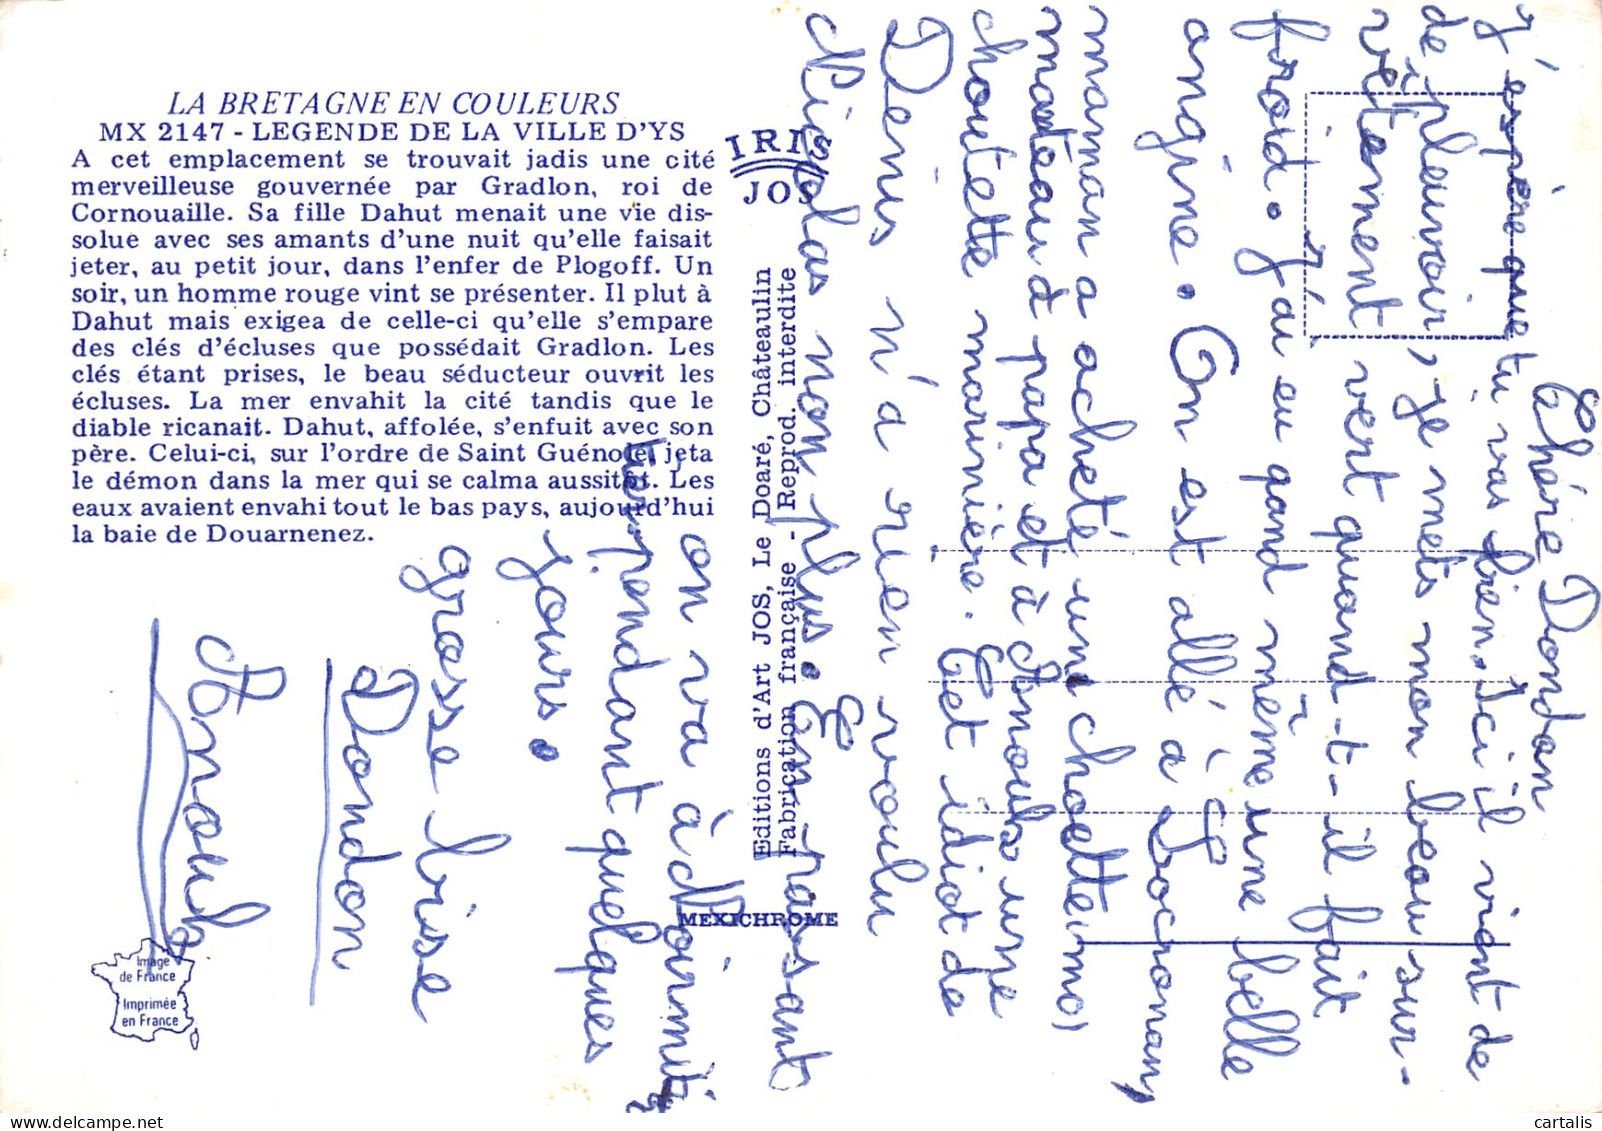 LA BRETAGNE EN COULEURS
MX 2147 - LEGENDE DE LA VILLE D'YS
A cet emplacement se trouvait jadis une cité
merveilleuse gouvernée par Gradlon, roi de
Cornouaille. Sa fille Dahut menait une vie dis-
solue avec ses amants d'une nuit qu'elle faisait
jeter, au petit jour, dans l'enfer de Plogoff. Un
soir, un homme rouge vint se présenter. Il plut à
Dahut mais exigea de celle-ci qu'elle s'empare
des clés d'écluses que possédait Gradlon. Les
clés étant prises, le beau séducteur ouvrit les
écluses. La mer envahit la cité tandis que le
diable ricanait. Dahut, affolée, s'enfuit avec son
père. Celui-ci, sur l'ordre de Saint Guénolé, jeta
le démon dans la mer qui se calma aussitôt. Les
eaux avaient envahi tout le bas pays, aujourd'hui
la baie de Douarnenez.
IRIS
JOS
Editions d'Art JOS, Le Doaré, Châteaulin
Fabrication française - Reprod. interdite
MEXICHROME
Image
de France
Imprimée
en France
Chère Dondon
J'espère que tu vas bien. Ici il vient de
de pleuvoir, je mets mon beau sur-
vêtement vert quand-t-il fait
froid. J'ai eu quand même une belle
angine. On est allé à Locronan,
maman a acheté une chouette
manteau d papa et à Anouk une
chouette marinière. Cet idiot de
Denis n'a rien voulu
Nicolas non plus. En passant
on va à
pendant quelques
jours.
grosse bise
Dondon
Anouk
cartalis
www.delcampe.net